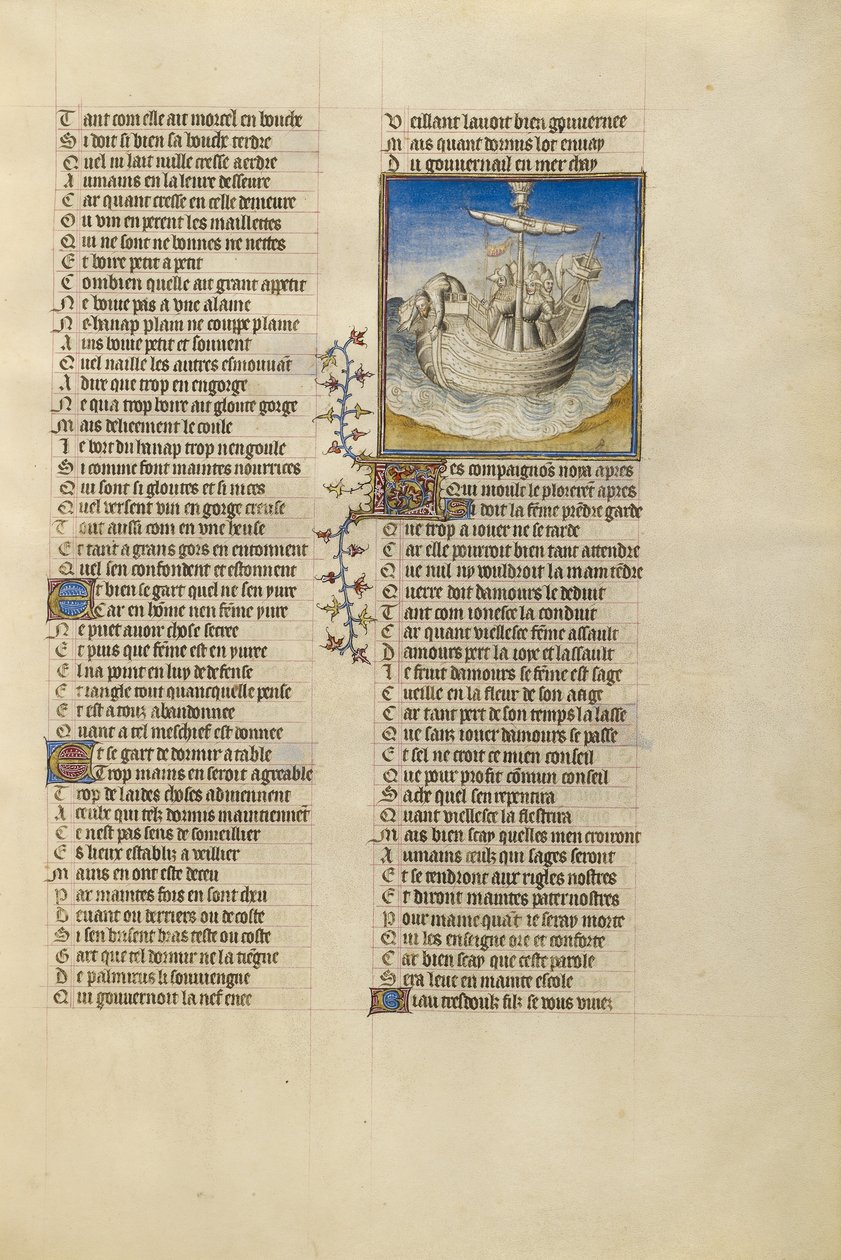 Tant com elle ait morcel en bouche
Si doit si bien sa bouche terdre
Quel ni lait nulle cresse aerdre
Aumains en la leure desseure
Car quant cresse en celle demeure
Ou vin en perent les maillettes
Qui ne sont ne bonnes ne nettes
Et boire petit a petit
Combien quelle ait grant appetit
Ne boiue pas a vne alaine
Ne hanap plain ne couppe plaine
Ains boiue petit et souuent
Quel naille les autres esmouuāt
A dire que trop en engorge
Ne qua trop boire ait gloute gorge
Mais delieement le coule
Le bort du hanap trop nengoule
Si comme font maintes nourrices
Qui sont si gloutes et si nices
Quel versent vin en gorge creuse
Tout aussi com en vne heuse
Et tant a grans gors en entonnent
Quel sen confondent et estonnent
Et bien se gart quel ne sen yure
Car en hōme nen fēme yure
Ne puet auoir chose secree
Et puis que fēme est en yuree
El na point en luy de defense
Et iangle tout quancquelle pense
Et est a touz abandonnee
Quant a tel meschief est donnee
Et se gart de dormir a table
Trop mains en seroit agreable
Trop de laides choses aduiennent
A ceulx qui telz dormis maintiennēt
Ce nest pas sens de someillier
Es lieux establiz a veillier
Mains en ont este deceu
Par maintes fois en sont cheu
Deuant ou derriers ou de coste
Si sen brisent bras teste ou coste
Gart que tel dormir ne la tiēgne
De palinurus li souuiengne
Qui gouuernoit la nef enee
Veillant lauoit bien gouuernee
Mais quant dormis lot enuay
Du gouuernail en mer chay
Des compaignōs noya apres
Qui moult le plorerēt apres
Si doit la fēme prēdre garde
Que trop a iouer ne se tarde
Car elle pourroit bien tant attendre
Que nul ny vouldroit la main tēdre
Querre doit damours le deduit
Tant com ionesce la conduit
Car quant viellesce fēme assault
Damours pert la ioye et lassault
Le fruit damours se fēme est sage
Cueille en la fleur de son aage
Car tant pert de son temps la lasse
Que sanz iouer damours se passe
Et sel ne croit ce mien conseil
Que pour profit cōmun conseil
Sache quel sen repentira
Quant viellesce la flestrira
Mais bien scay quelles men croiront
Aumains ceulz qui sages seront
Et se tendront aux rigles nostres
Et diront maintes paternostres
Pour mame quāt ie seray morte
Qui les enseigne ore et conforte
Car bien scay que ceste parole
Sera leue en mainte escole
Biau tresdoulz filz se vous viuez